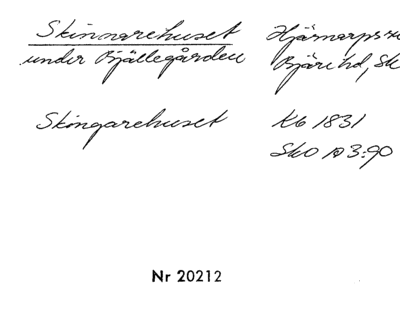 Skinnarehuset Hjärnarps
under Bjällegården Bjäre hd, Sk
Skingarehuset Kb 1831
SkO A3:90
Nr 20212